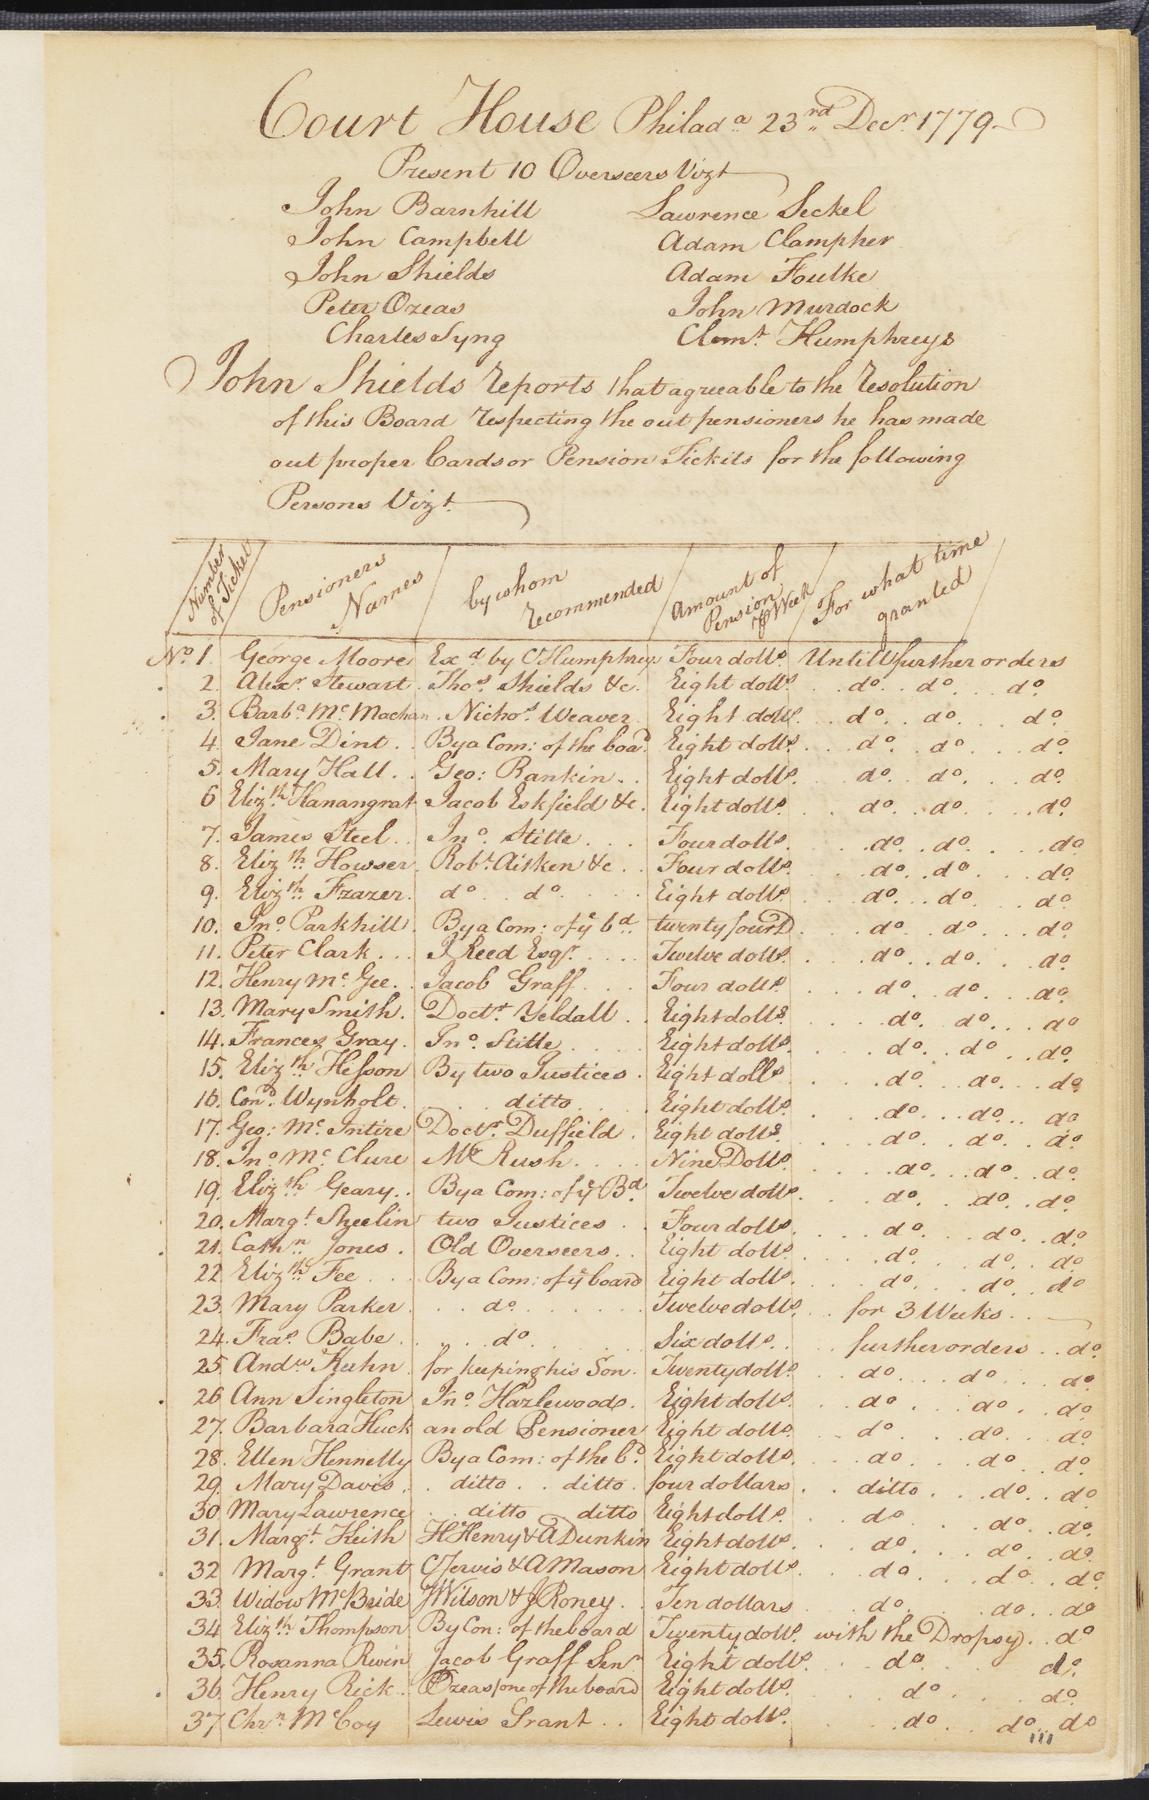 Court House Philada 23rd Decr 1779
Present 10 Overseers Vizt
John Barnhill Lawrence Seckel
John Campbell Adam Clampher
John Shields Adam Foulke
Peter Ozeas John Murdock
Charles Syng Clemt. Humphreys
John Shields Reports that agreeable to the Resolution
of this Board Respecting the out pensioners he has made
out proper Cards or Pension Tickits for the following
Persons Vizt.
Number of Ticket Pensioners Names by whom recommended Amount of Pension ⅌ Week For what time granted
No. 1. George Moore Exd by C Humphreys Four dolls. Untill further orders
2. Alexr. Stewart. Thos. Shields &c. Eight dolls. do. do. do.
3. Barba. Mc. Machan. Nichos. Weaver Eight dolls. do. do. do.
4. Jane Dint. By a Com: of the board Eight dolls. do. do. do.
5. Mary Hall. Geo: Rankin. Eight dolls. do. do. do.
6 Elizth. Hanangrat Jacob Eskfield &c. Eight dolls. do. do. do.
7. James Steel. Jno. Stille. Four dolls. do. do. do.
8. Elizth. Howser. Robt. Aitken &c. Four dolls. do. do. do.
9. Elizth. Frazer. do. do. Eight dolls. do. do. do.
10. Jno. Parkhill. By a Com: of ye bd. twenty four D. do. do. do.
11. Peter Clark. J Reed Esqr. Twelve dolls. do. do. do.
12. Henry Mc. Gee. Jacob Graff. Four dolls. do. do. do.
13. Mary Smith. Doctr. Yeldall. Eight dolls. do. do. do.
14. Frances Gray. Jno. Stille. Eight dolls. do. do. do.
15. Elizth. Hesson By two Justices. Eight dolls do. do. do.
16. Cond. Wynholt. ditto Eight dolls. do. do. do
17. Geo: Mc. Intire Doctr. Duffield. Eight dolls. do. do. do.
18. Jno Mc. Clure Mr Rush. Nine Dolls. do. do. do.
19. Elizth Geary. By a Com: of ye Bd. Twelve dolls. do. do. do.
20. Margt. Sheelin two Justices. Four dolls. do. do. do.
21. Cathn. Jones. Old Overseers. Eight dolls. do. do. do.
22. Elizth. Fee By a Com: of ye board Eight dolls. do. do. do
23. Mary Parker. do. Twelve dolls. for 3 Weeks.
24. Fras. Babe. do. Six dolls. further orders. do.
25. Andw. Kuhn. for keeping his Son. Twenty dolls. do. do. do.
26 Ann Singleton Jno. Hazlewoods. Eight dolls. do. do. do.
27. Barbara Huck an old Pensioner Eight dolls. do. do. do.
28. Ellen Hennelly By a Com: of the bd. Eight dolls. do. do. do.
29. Mary Davis. ditto. ditto. four dollars. ditto. do. do.
30 Mary Lawrence ditto ditto Eight dolls. do. do. do.
31. Margt. Keith H Henry & A Dunkin Eight dolls. do. do. do.
32 Margt. Grant C Jervis & A Mason Eight dolls. do. do. do.
33. Widow Mc Bride J Wilson & J Roney. Ten dollars do. do. do
34 Elizth. Thompson By Com: of the board Twenty dolls. with the Dropsy. do
35. Rosanna Rivin Jacob Graff Senr. Eight dolls. do. do.
36. Henry Rick. Ozeas/one of the board Eight dolls. do. do.
37 Chrn. McCoy Lewis Grant. Eight dolls. do. do. do
111